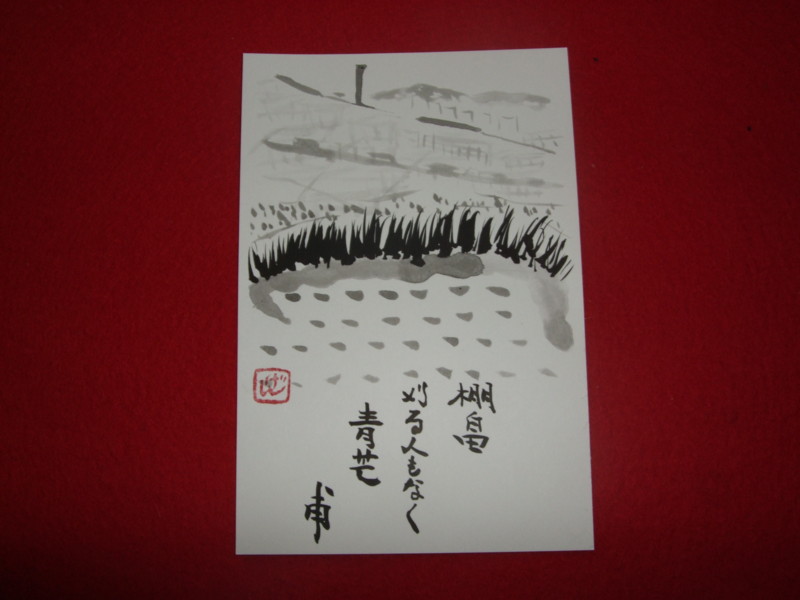 棚畠
刈る人もなく
青芒
甫